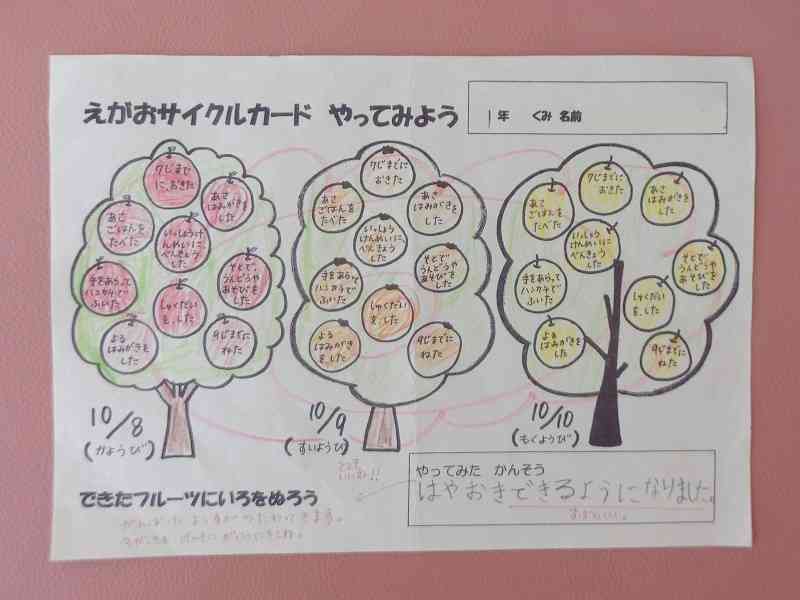 えがおサイクルカード やってみよう
1年 くみ 名前
7じまでに、おきた
あさごはんをたべた
あさはみがきをした
いっしょうけんめいにべんきょうした
手をあらってハンカチでふいた
そとでうんどうやあそびをした
しゅくだいを、した
よるはみがきをした
9じまでにねた
10/8
(かようび)
7じまでにおきた
あさごはんをたべた
あさはみがきをした
いっしょうけんめいに、べんきょうした
手をあらってハンカチでふいた
そとでうんどうやあそびをした
しゅくだいを、した
よるはみがきをした
9じまでにねた
10/9
(すいようび)
7じまでにおきた
あさごはんをたべた
あさはみがきをした
いっしょうけんめいにべんきょうした
手をあらってハンカチでふいた
そとでうんどうやあそびをした
しゅくだいを、した
よるはみがきをした
9じまでにねた
10/10
(もくようび)
できたフルーツにいろをぬろう
やってみた かんそう
はやおきできるようになりました。
すばらしい。